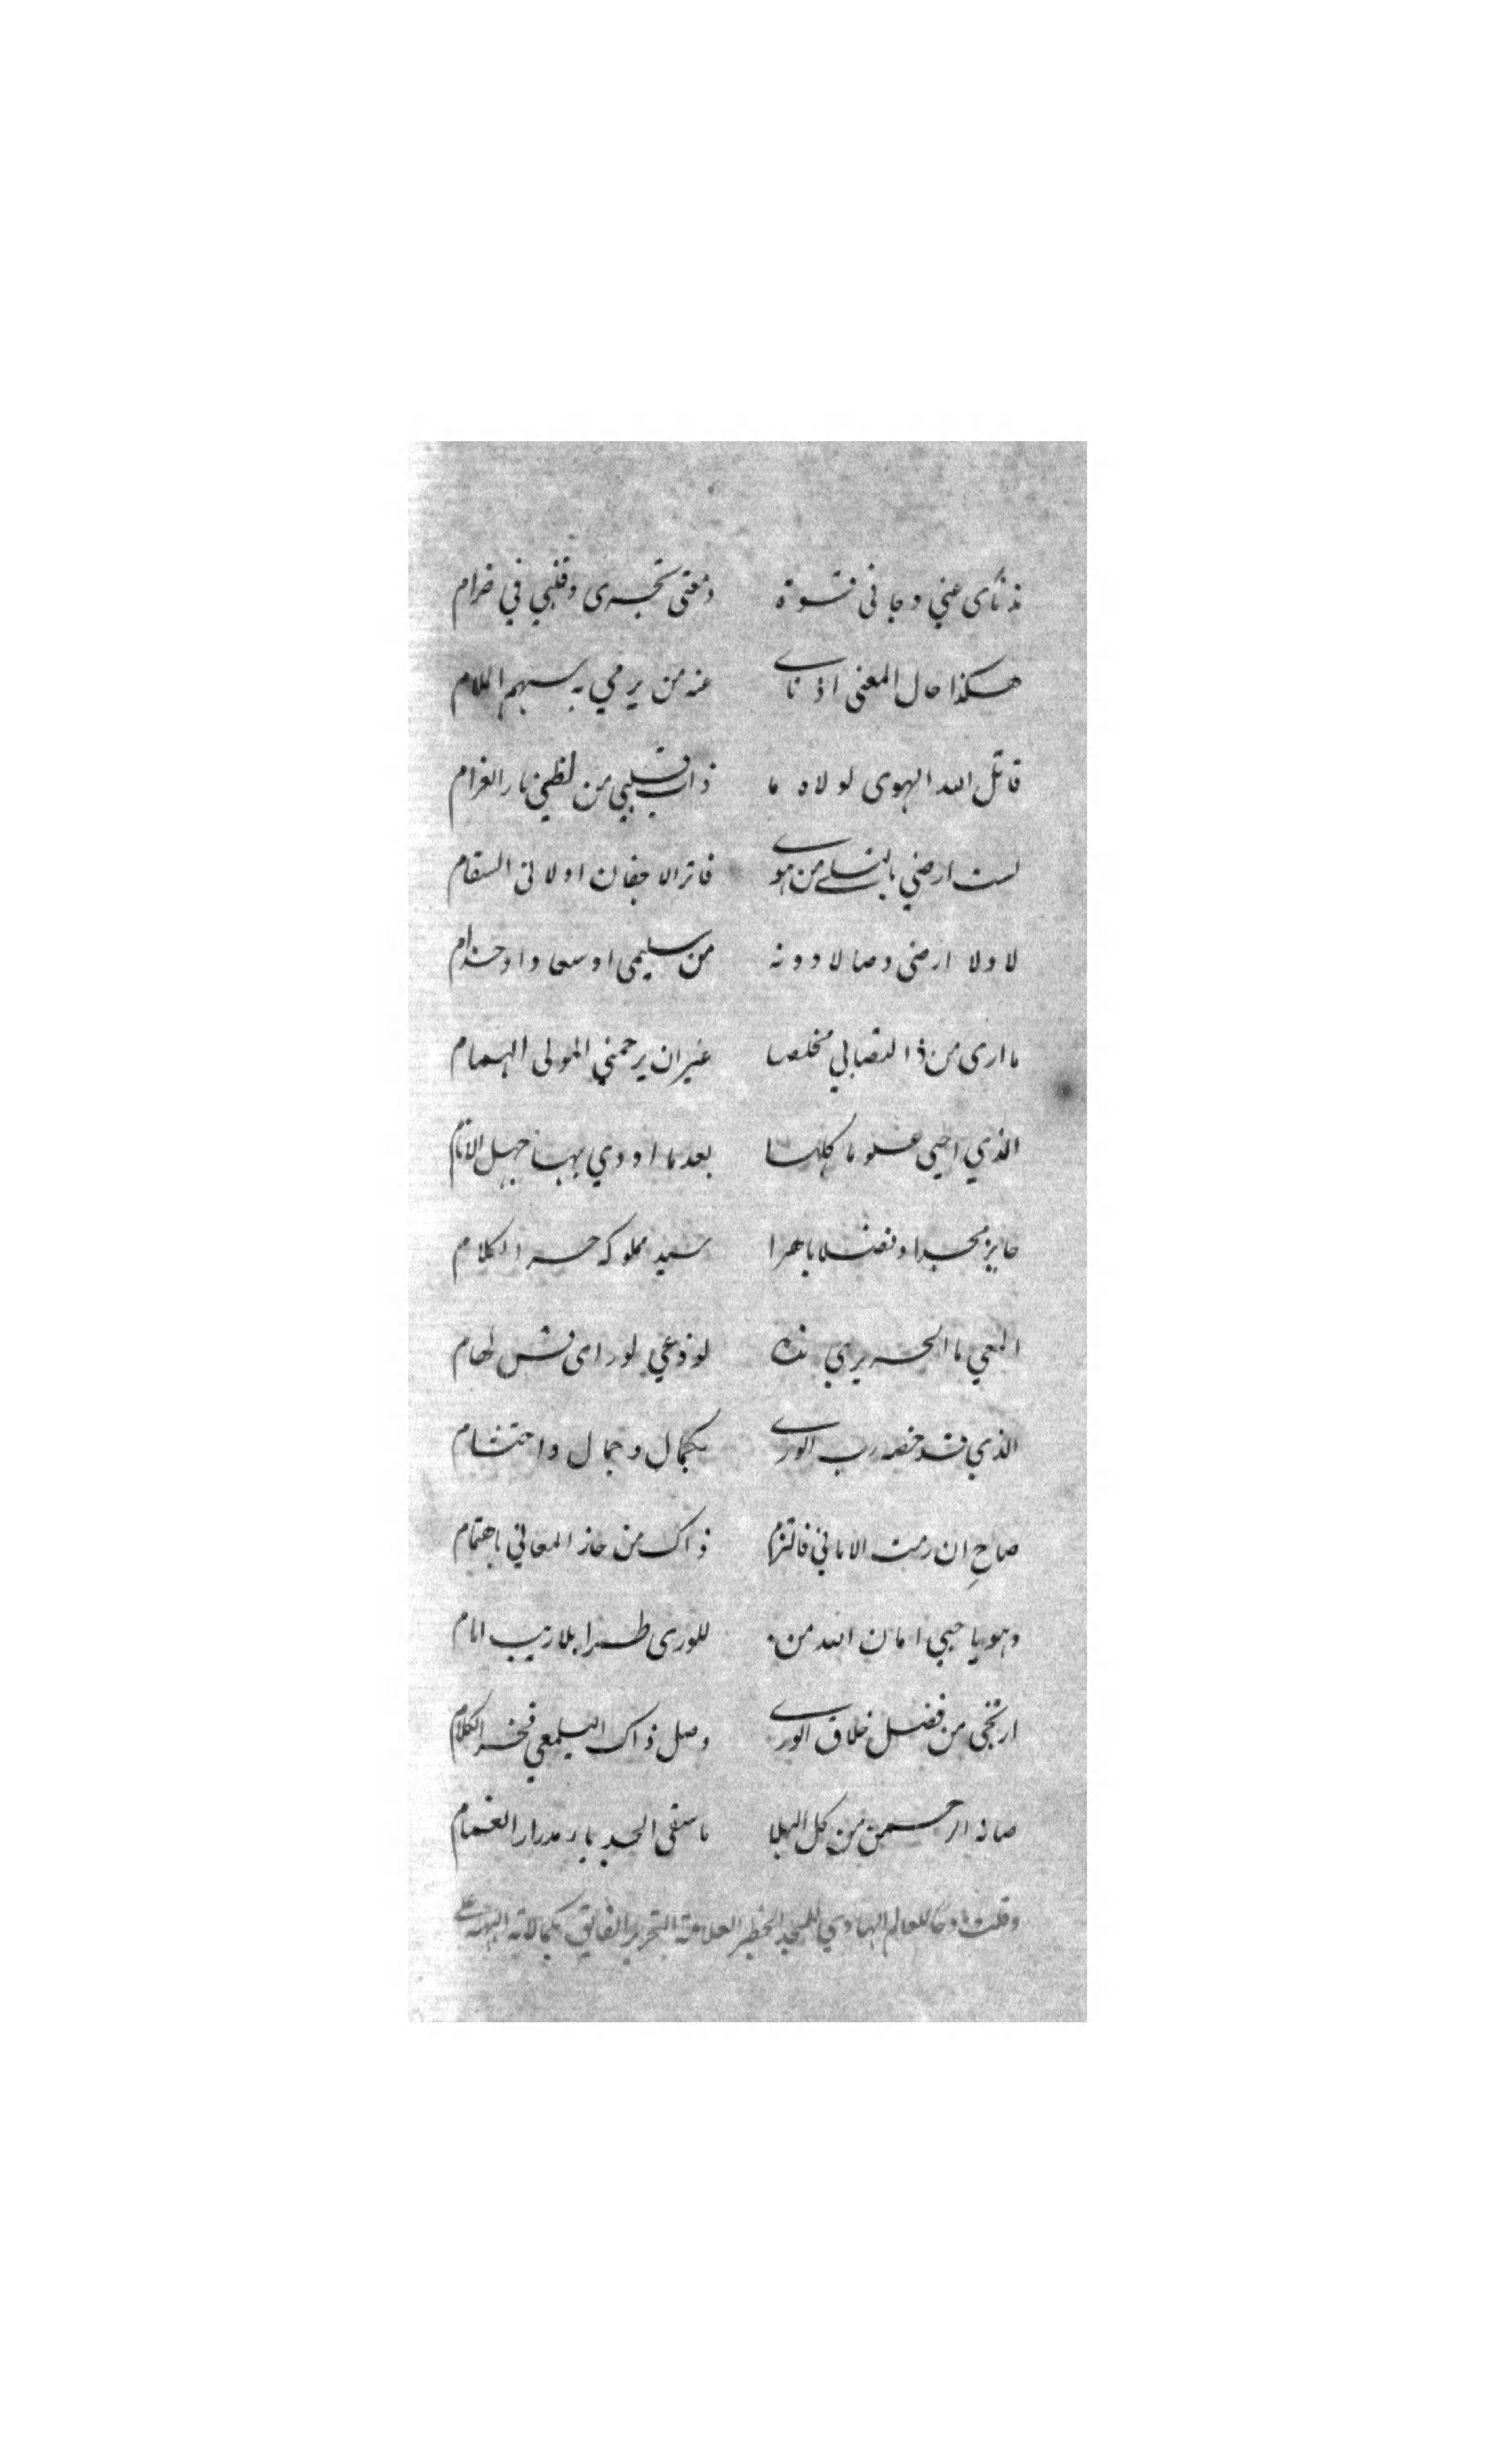 مذ نأى عني وجافى قسوة دمعتى تجرى وقلبي في ضرام
هكذا حال المعنى اذ ناى عنه من يرمي به سهم الملام
قاتل الله الهوى لولاه ما ذاب قلبي من لظى نار الغرام
لست ارضي بالتسلي من هوى فاتر الاجفان اولاني السقام
لا ولا ارضى وصالا دونه من سليمى او سعاد او حذام
ما ارى من ذا التصابي مخلصا غير ان يرحمني المولى الهمام
الذي احيى علوما كلها بعدما اودي بها جهل الانام
حايز مجدا وفضلا باهرا سيد مملوكه حر الكلام
المعي ما الحريري نده لوذعي لو راى قس لهام
الذي قد خصه رب الورى بكمال وجمال واحتشام
صاحِ ان رمت الاماني فالتزم ذاك من حاز المعاني باهتمام
وهو يا حبي امان الله من للورى طرا بلا ريب امام
ارتجى من فضل خلاق الورى وصل ذاك اليلمعي فخر الكلام
صانه الرحمن من كل البلا ما سقى الجدباء مدرار الغمام
وقلت مادحا للعالم الهادي للمجد الخطير العلامة النحرير الفايق بكمالاته البهية على